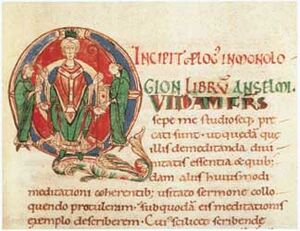 INCIPIT PLOG' IN MONOLO
GION LIBRŪ ANSELMI.
QVIDAM FRS
sepe me studioseq; pre
cati sunt. ut quędā que
illis de meditanda divi
nitatis essentia & quib;
dam aliis huiusmodi
meditationi coherentib; usitato sermone collo
quendo protuleram. sub quodā eis meditationis
exemplo describerem. Cui' scilicet scribende